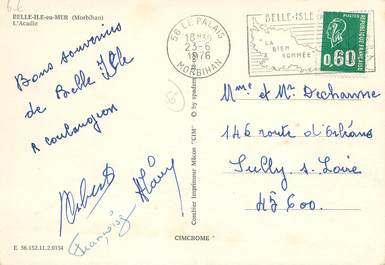 BELLE-ILE-en-MER (Morbihan)
L'Acadie
Bons souvenirs
de Belle Isle
R Coulangeon
Hubert
Françoise
E 56.152.11.2.0154
CIMCROME
Combier Imprimeur Mâcon "CIM"
56 LE PALAIS
18H30
23-6
1976
MORBIHAN
BELLE-ISLE
LA
BIEN
NOMMÉE
POSTES
0,60
REPUBLIQUE FRANÇAISE
Mme et Mr Dechanne
146 route d'Orléans
Sully s. Loire
45600.